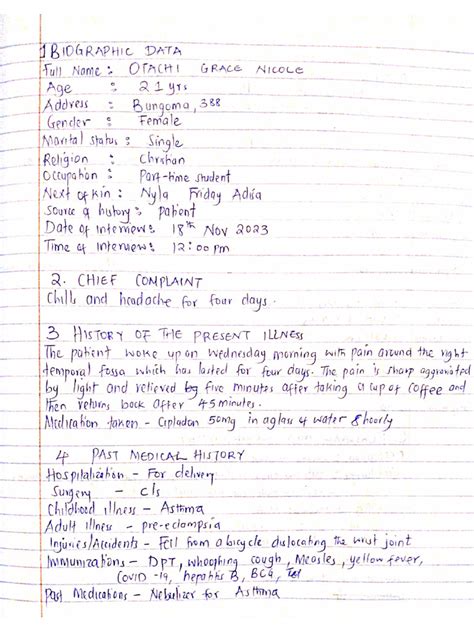 1 BIOGRAPHIC DATA
Full Name : OTACHI GRACE NICOLE
Age : 21 yrs
Address : Bungoma, 388
Gender : Female
Marital status : Single
Religion : Christian
Occupation : Part-time student
Next of kin : Nyla Friday Adiia
Source of history : patient
Date of interview : 18th Nov 2023
Time of interview : 12:00 pm
2. CHIEF COMPLAINT
Chills and headache for four days.
3 HISTORY OF THE PRESENT ILLNESS
The patient woke up on Wednesday morning with pain around the right
temporal fossa which has lasted for four days. The pain is sharp aggravated
by light and relieved by five minutes after taking a cup of coffee and
then returns back after 45 minutes.
Medication taken - Cipladon 50mg in a glass of water 8 hourly
4 PAST MEDICAL HISTORY
Hospitalization - For delivery
Surgery - c/s
Childhood illness - Asthma
Adult illness - pre-eclampsia
Injuries/Accidents - Fell from a bicycle dislocating the wrist joint
Immunizations - DPT, whooping cough, Measles, yellow fever,
COVID -19, hepatitis B, BCG,
Past Medications - Nebulizer for Asthma